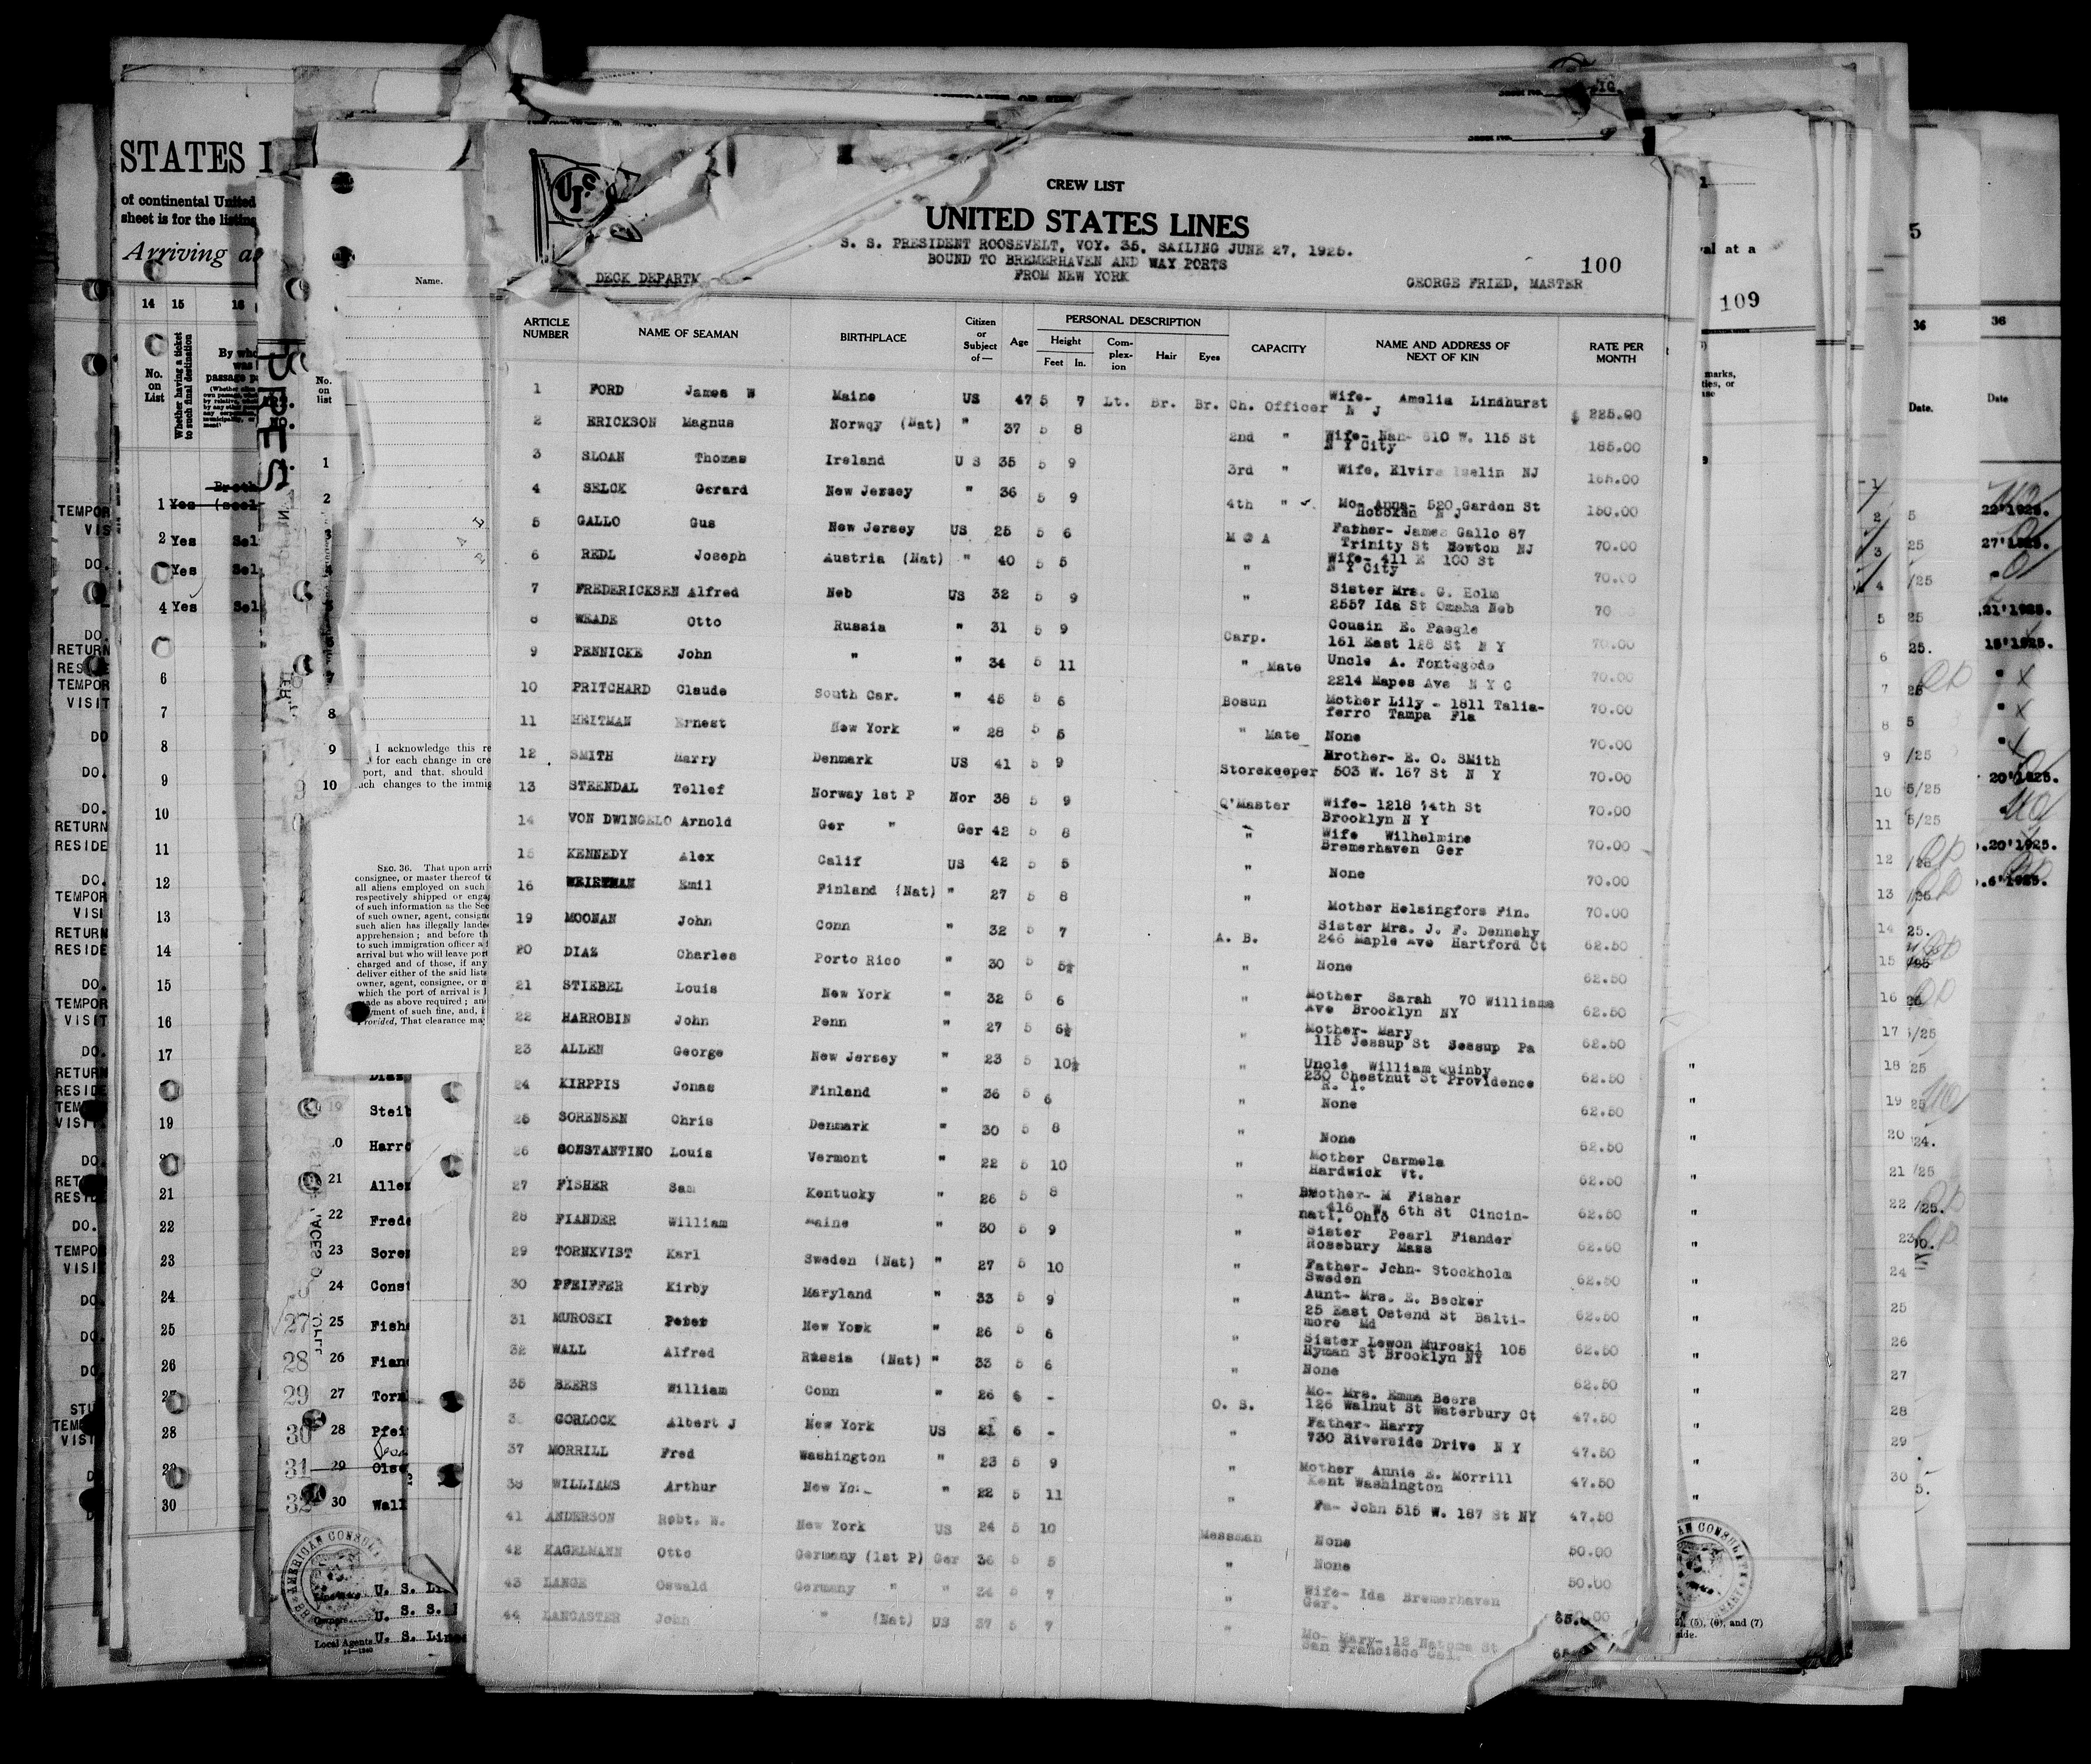 CREW LIST
UNITED STATES LINES
S. S. PRESIDENT ROOSEVELT, VOY. 35, SAILING JUNE 27, 1925.
BOUND TO BREMERHAVEN AND WAY PORTS
FROM NEW YORK
DECK DEPARTM
GEORGE FRIED, MASTER
100
ARTICLE NUMBER NAME OF SEAMAN BIRTHPLACE Citizen or Subject of— Age PERSONAL DESCRIPTION Height Feet In. Com-plex-ion Hair Eyes CAPACITY NAME AND ADDRESS OF NEXT OF KIN RATE PER MONTH
1 FORD James W Maine US 47 5 7 Lt. Br. Br. Ch. Officer Wife- Amelia Lindhurst N J $ 225.00
2 ERICKSON Magnus Norwqy (Nat) " 37 5 8 2nd " Wife- Nan- 610 W. 115 St N Y City 185.00
3 SLOAN Thomas Ireland U S 35 5 9 3rd " Wife, Elvira Iselin NJ 165.00
4 SELCK Gerard New Jersey " 36 5 9 4th " Mo- Anna- 520 Garden St Hoboken N J 150.00
5 GALLO Gus New Jersey US 25 5 6 M @ A Father- James Gallo 87 Trinity St Newton NJ 70.00
6 REDL Joseph Austria (Nat) " 40 5 5 " Wife- 411 E 100 St N Y City 70.00
7 FREDERICKSEN Alfred Neb US 32 5 9 " Sister Mrs. G. Holm 2557 Ida St Omaha Neb 70
8 WEADE Otto Russia " 31 5 9 Carp. Cousin E. Paegle 161 East 128 St N Y 70.00
9 PENNICKE John " " 34 5 11 " Mate Uncle A. Tontegode 2214 Mapes Ave N Y C 70.00
10 PRITCHARD Claude South Car. " 45 5 6 Bosun Mother Lily - 1811 Talia-ferro Tampa Fla 70.00
11 HEITMAN Ernest New York " 28 5 5 " Mate None 70.00
12 SMITH Harry Denmark US 41 5 9 Storekeeper Brother- E. O. SMith 503 W. 167 St N Y 70.00
13 STEENDAL Tellef Norway 1st P Nor 38 5 9 Q'Master Wife- 1218 74th St Brooklyn N Y 70.00
14 VON DWINGELO Arnold Ger " Ger 42 5 8 " Wife Wilhelmine Bremerhaven Ger 70.00
15 KENNEDY Alex Calif US 42 5 5 " None 70.00
16 Emil Finland (Nat) " 27 5 8 " Mother Helsingfors Fin. 70.00
19 MOONAN John Conn " 32 5 7 A. B. Sister Mrs. J. F. Dennehy 246 Maple Ave Hartford Ct 62.50
20 DIAZ Charles Porto Rico " 30 5 5½ " None 62.50
21 STIEBEL Louis New York " 32 5 6 " Mother Sarah 70 Williams Ave Brooklyn NY 62.50
22 HARROBIN John Penn " 27 5 6½ " Mother- Mary 115 Jessup St Jessup Pa 62.50
23 ALLEN George New Jersey " 23 5 10½ " Uncle William Quinby 230 Chestnut St Providence R. I. 62.50
24 KIRPPIS Jonas Finland " 36 5 6 " None 62.50
25 SORENSEN Chris Denmark " 30 5 8 " None 62.50
26 CONSTANTINO Louis Vermont " 22 5 10 " Mother Carmela Hardwick Vt. 62.50
27 FISHER Sam Kentucky " 26 5 8 " Brother- M Fisher 416 W. 6th St Cincin-nati, Ohio 62.50
28 FIANDER William Maine " 30 5 9 " Sister Pearl Fiander Rosebury Mass 62.50
29 TORNKVIST Karl Sweden (Nat) " 27 5 10 " Father- John- Stockholm Sweden 62.50
30 PFEIFFER Kirby Maryland " 33 5 9 " Aunt- Mrs. E. Becker 25 East Ostend St Balti-more Md 62.50
31 MUROSKI Peter New York " 26 5 6 " Sister Lewon Muroski 105 Hyman St Brooklyn NY 62.50
32 WALL Alfred Russia (Nat) " 33 5 6 " None 62.50
35 BEERS William Conn " 26 6 - O. S. Mo- Mrs. Emma Beers 126 Walnut St Waterbury Ct 47.50
GORLOCK Albert J New York US 21 6 - " Father- Harry 730 Riverside Drive N Y 47.50
37 MORRILL Fred Washington " 23 5 9 " Mother Annie E. Morrill Kent Washington 47.50
38 WILLIAMS Arthur New York " 22 5 11 " Fa- John 515 W. 187 St NY 47.50
41 ANDERSON Robt. W. New York US 24 5 10 Messman None 50.00
42 KAGELMANN Otto Germany (1st P) Ger 36 5 5 " None 50.00
43 LANGE Oswald Germany " " 34 5 7 " Wife- Ida Bremerhaven Ger.
44 LANCASTER John " (Nat) US 37 5 7 " Mo- Mary- 12 Natoma St San Francisco Cal.
STATES I
of continental United
sheet is for the listing
Arriving as
14 15 16
No. on List
Whether having a ticket to such final destination
1 Yes
2 Yes Sel
Yes Sel
4 Yes Sel
Name.
No. on list
I acknowledge this re
for each change in cre
port, and that, should
such changes to the immig
SEC. 36. That upon arri
consignee, or master thereof
all aliens employed on such
respectively shipped or enga
of such information as the Sec
of such owner, agent, consigne
such alien has illegally lande
apprehension; and before th
to such immigration officer a
arrival but who will leave port
charged and of those, if any
deliver either of the said lists
owner, agent, consignee, or
which the port of arrival is
made as above required; an
payment of such fine, and,
Provided, That clearance ma
Steib
Harro
21 Aller
22 Frede
23 Sore
24 Const
27 25 Fishe
28 26 Fian
29 27 Torn
30 28 Pfei
31 29 Olse
32 30 Wall
AMERICAN CONSULA
Owners U. S. S.
Local Agents U. S. Line
val at a
109
36
Date.
36
Date